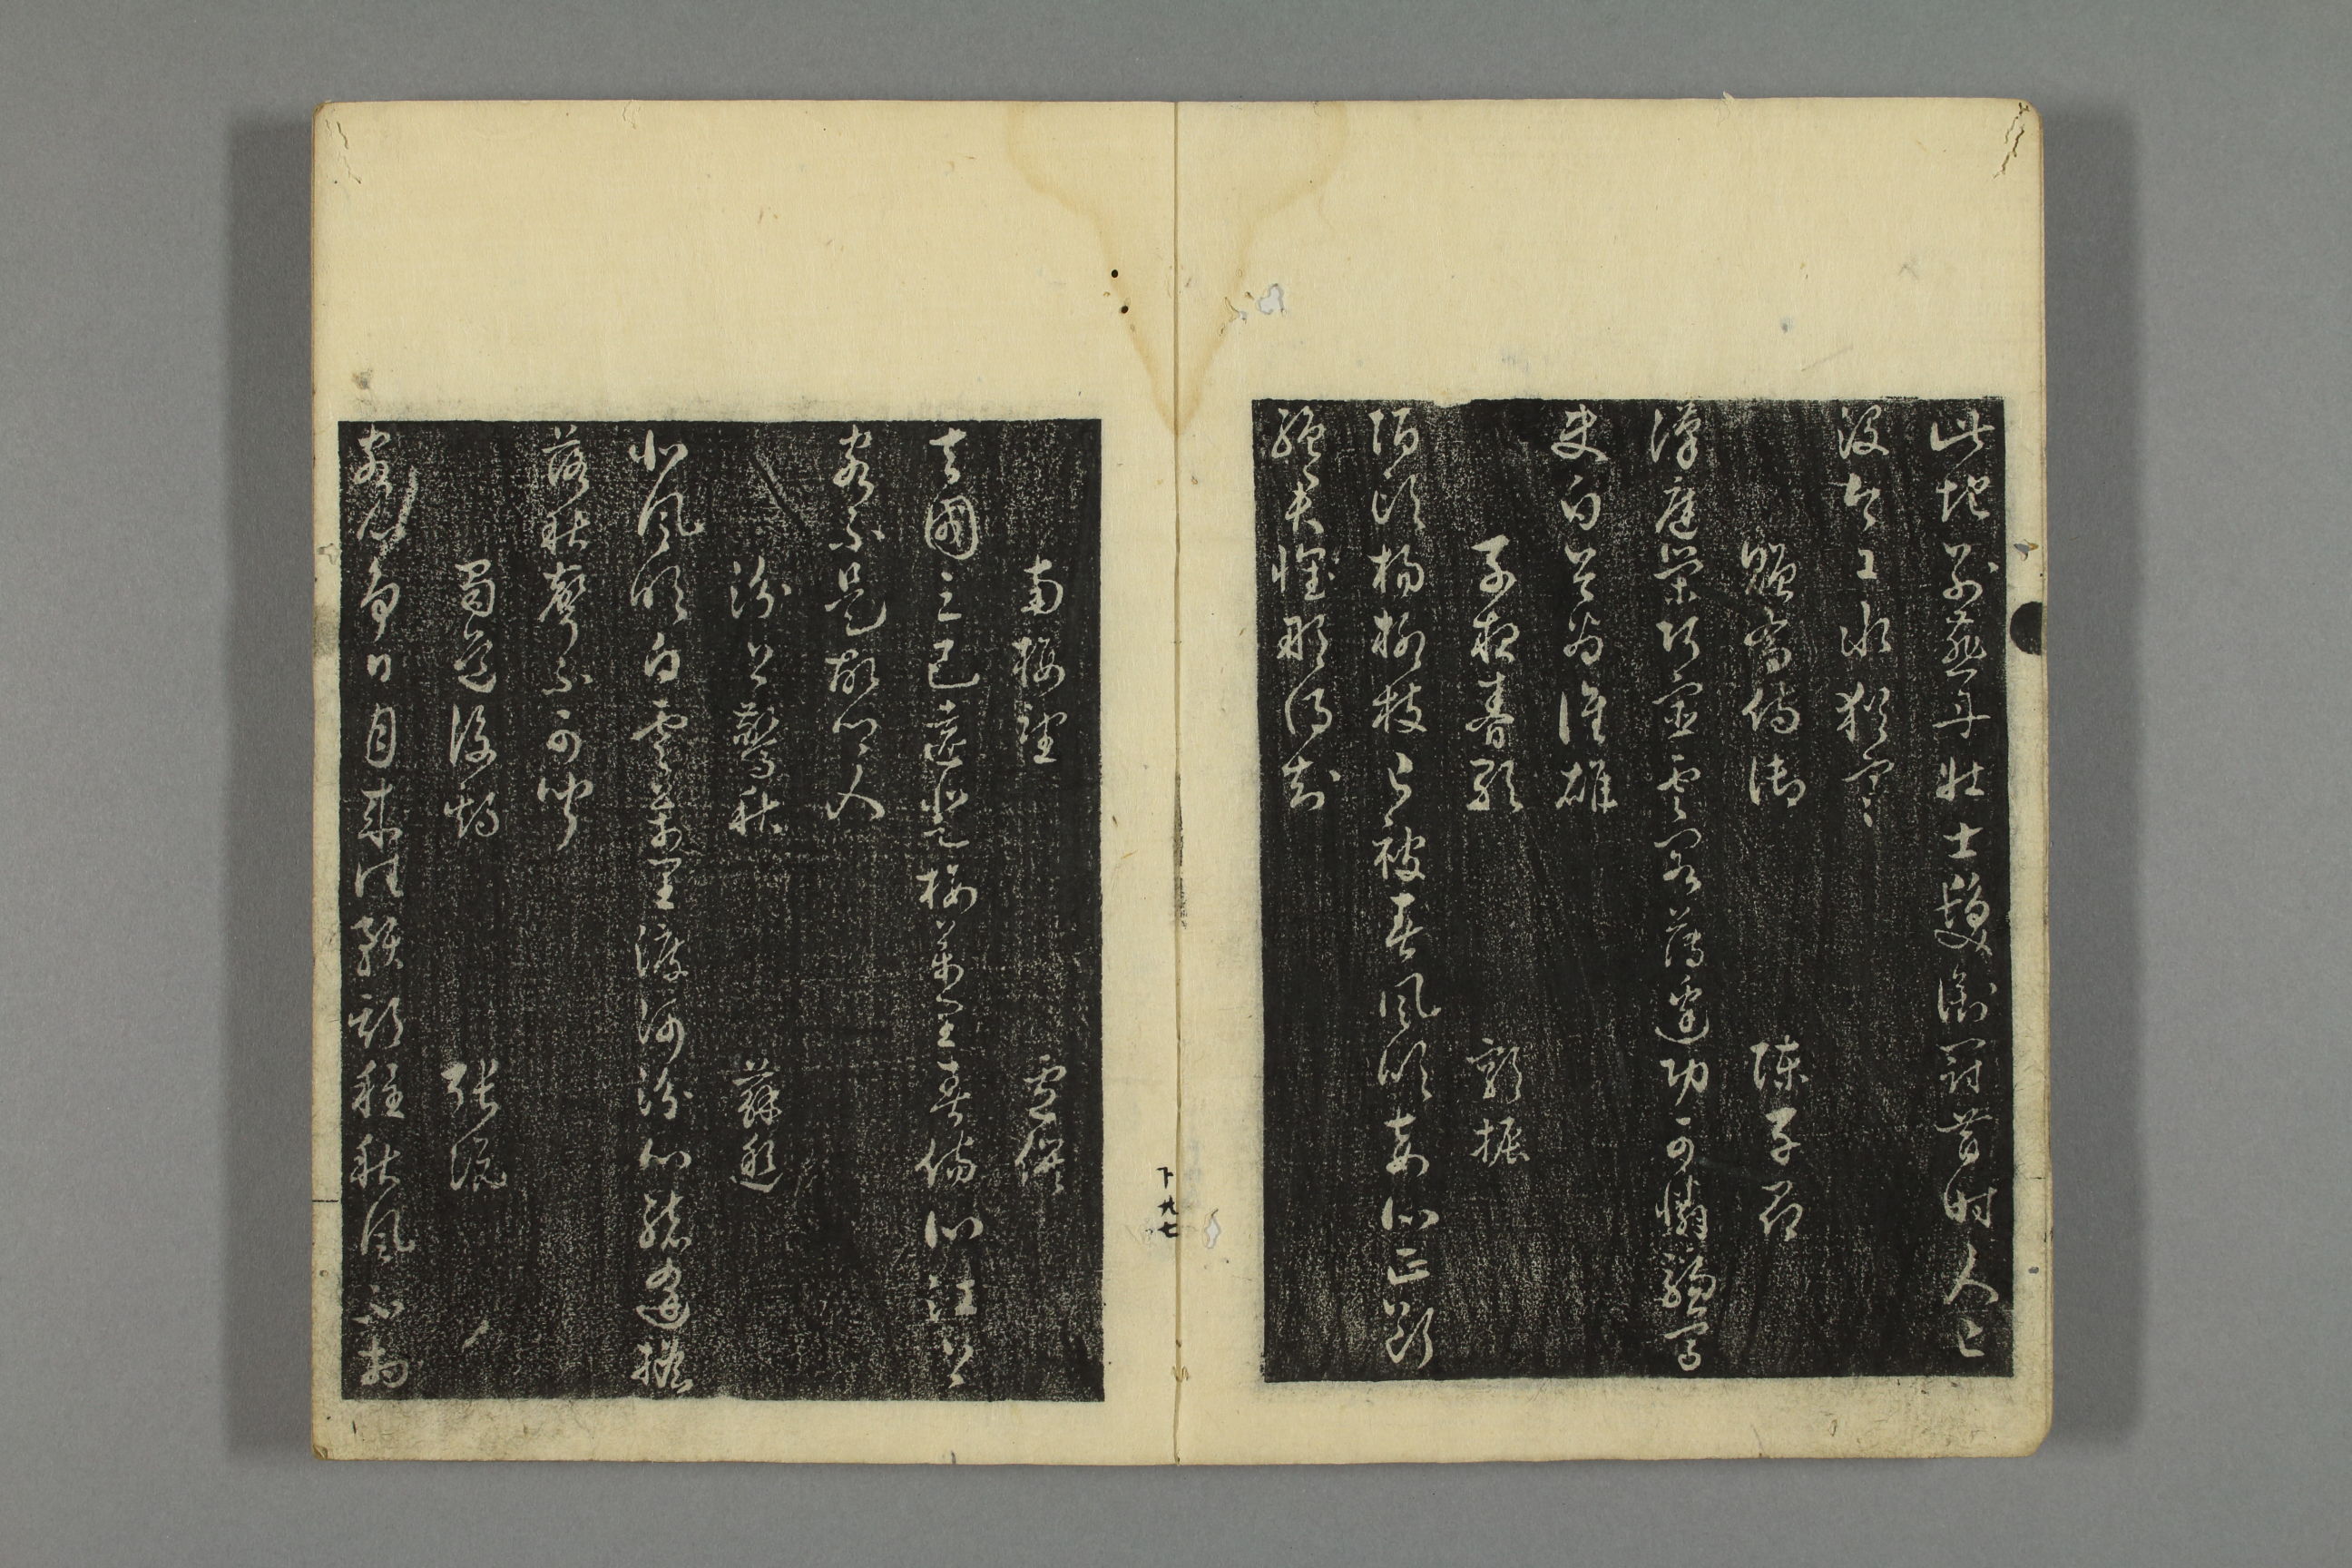 此地別燕丹壯士髮衝冠昔時人已
沒今日水猶寒
贈喬侍御 陳子昂
漢庭榮巧宦雲閣薄邊功可憐驄馬
使白首為誰雄
子夜春歌 郭振
陌頭楊柳枝已被春風吹妾心正斷
絕君懷那得知
下廿七
南樓望 盧僎
去國三巴遠登樓萬里春傷心江上
客不是故鄉人
汾上驚秋 蘇頲
北風吹白雲萬里渡河汾心緒逢搖
落秋聲不可聞
蜀道後期 張說
客心爭日月來往預期程秋風不相